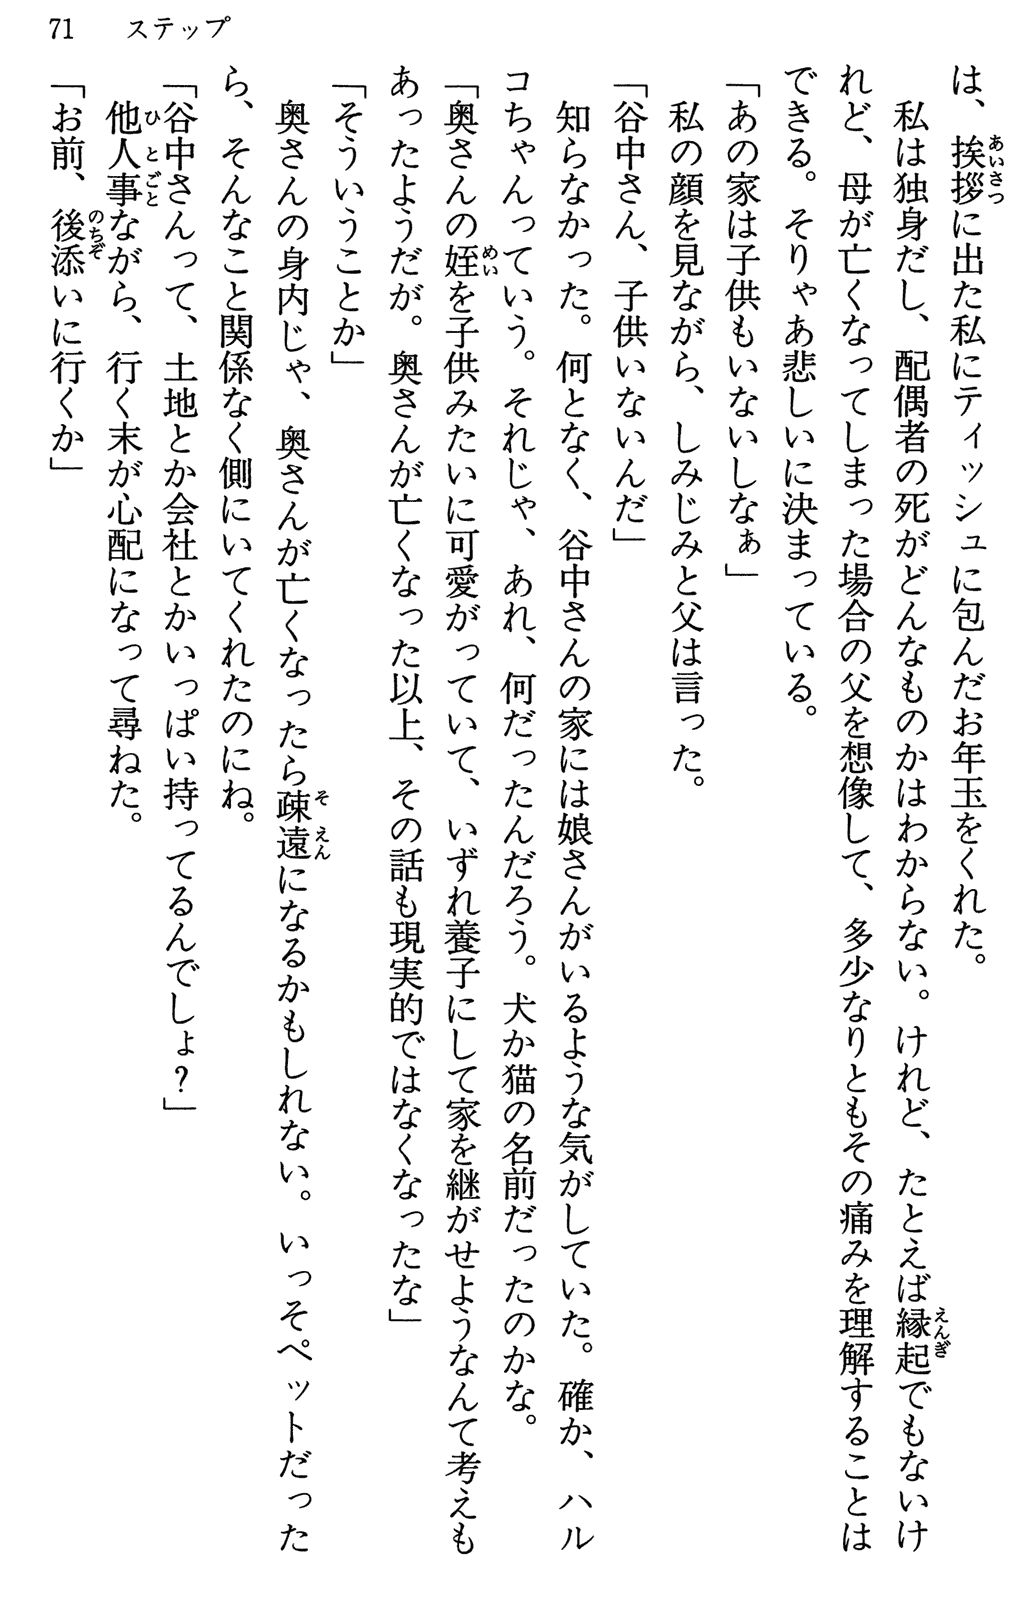 71 ステップ
は、挨拶に出た私にティッシュに包んだお年玉をくれた。
私は独身だし、配偶者の死がどんなものかはわからない。けれど、たとえば縁起でもないけ
れど、母が亡くなってしまった場合の父を想像して、多少なりともその痛みを理解することは
できる。そりゃあ悲しいに決まっている。
「あの家は子供もいないしなぁ」
私の顔を見ながら、しみじみと父は言った。
「谷中さん、子供いないんだ」
知らなかった。何となく、谷中さんの家には娘さんがいるような気がしていた。確か、ハル
コちゃんっていう。それじゃ、あれ、何だったんだろう。犬か猫の名前だったのかな。
「奥さんの姪を子供みたいに可愛がっていて、いずれ養子にして家を継がせようなんて考えも
あったようだが。奥さんが亡くなった以上、その話も現実的ではなくなったな」
「そういうことか」
奥さんの身内じゃ、奥さんが亡くなったら疎遠になるかもしれない。いっそペットだった
ら、そんなこと関係なく側にいてくれたのにね。
「谷中さんって、土地とか会社とかいっぱい持ってるんでしょ?」
他人事ながら、行く末が心配になって尋ねた。
「お前、後添いに行くか」